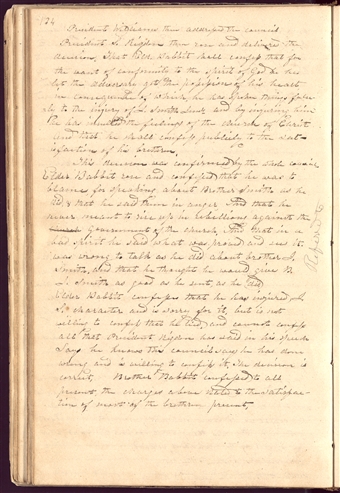 134
President Williams then addressed the council
President S. Rigdon then rose and delivered the
decision, That Elder Babbit shall confess that for
the want of conformity to the spirit of God he has
let the adversary get the possession of his heart
in consequence of which, he has spoken things false
ly to the injury of J. Smith Junr and by injuring him
he has injured the feelings of the church of Christ
and that he shall confess publicly to the sat
isfaction of his brethren.
This decision was confirmed by the Council
Elder Babbit rose and confessed that he was to
blame for speaking about Brother Smith as he
did & that he said them in anger. And that he
never meant to rise up in rebellion against the
church government of the church, And that in a
bad spirit he said what was proud and sees it
was wrong to talk as he did about brother J.
Smith, and that he thought he would give B
J. Smith as good as he sent, as he did
Elder Babbit confesses that he has injured J.
S. character and is sorry for it, but is not
willing to confess that he lied, and cannot confess
all that President Rigdon has said in his speech
Says he knows this council says he has done
wrong and is willing to confess it, The decision is
correct. Brother Babbit confessed to all
present, the charges above to the satisfac
tion of most of the brethren present,